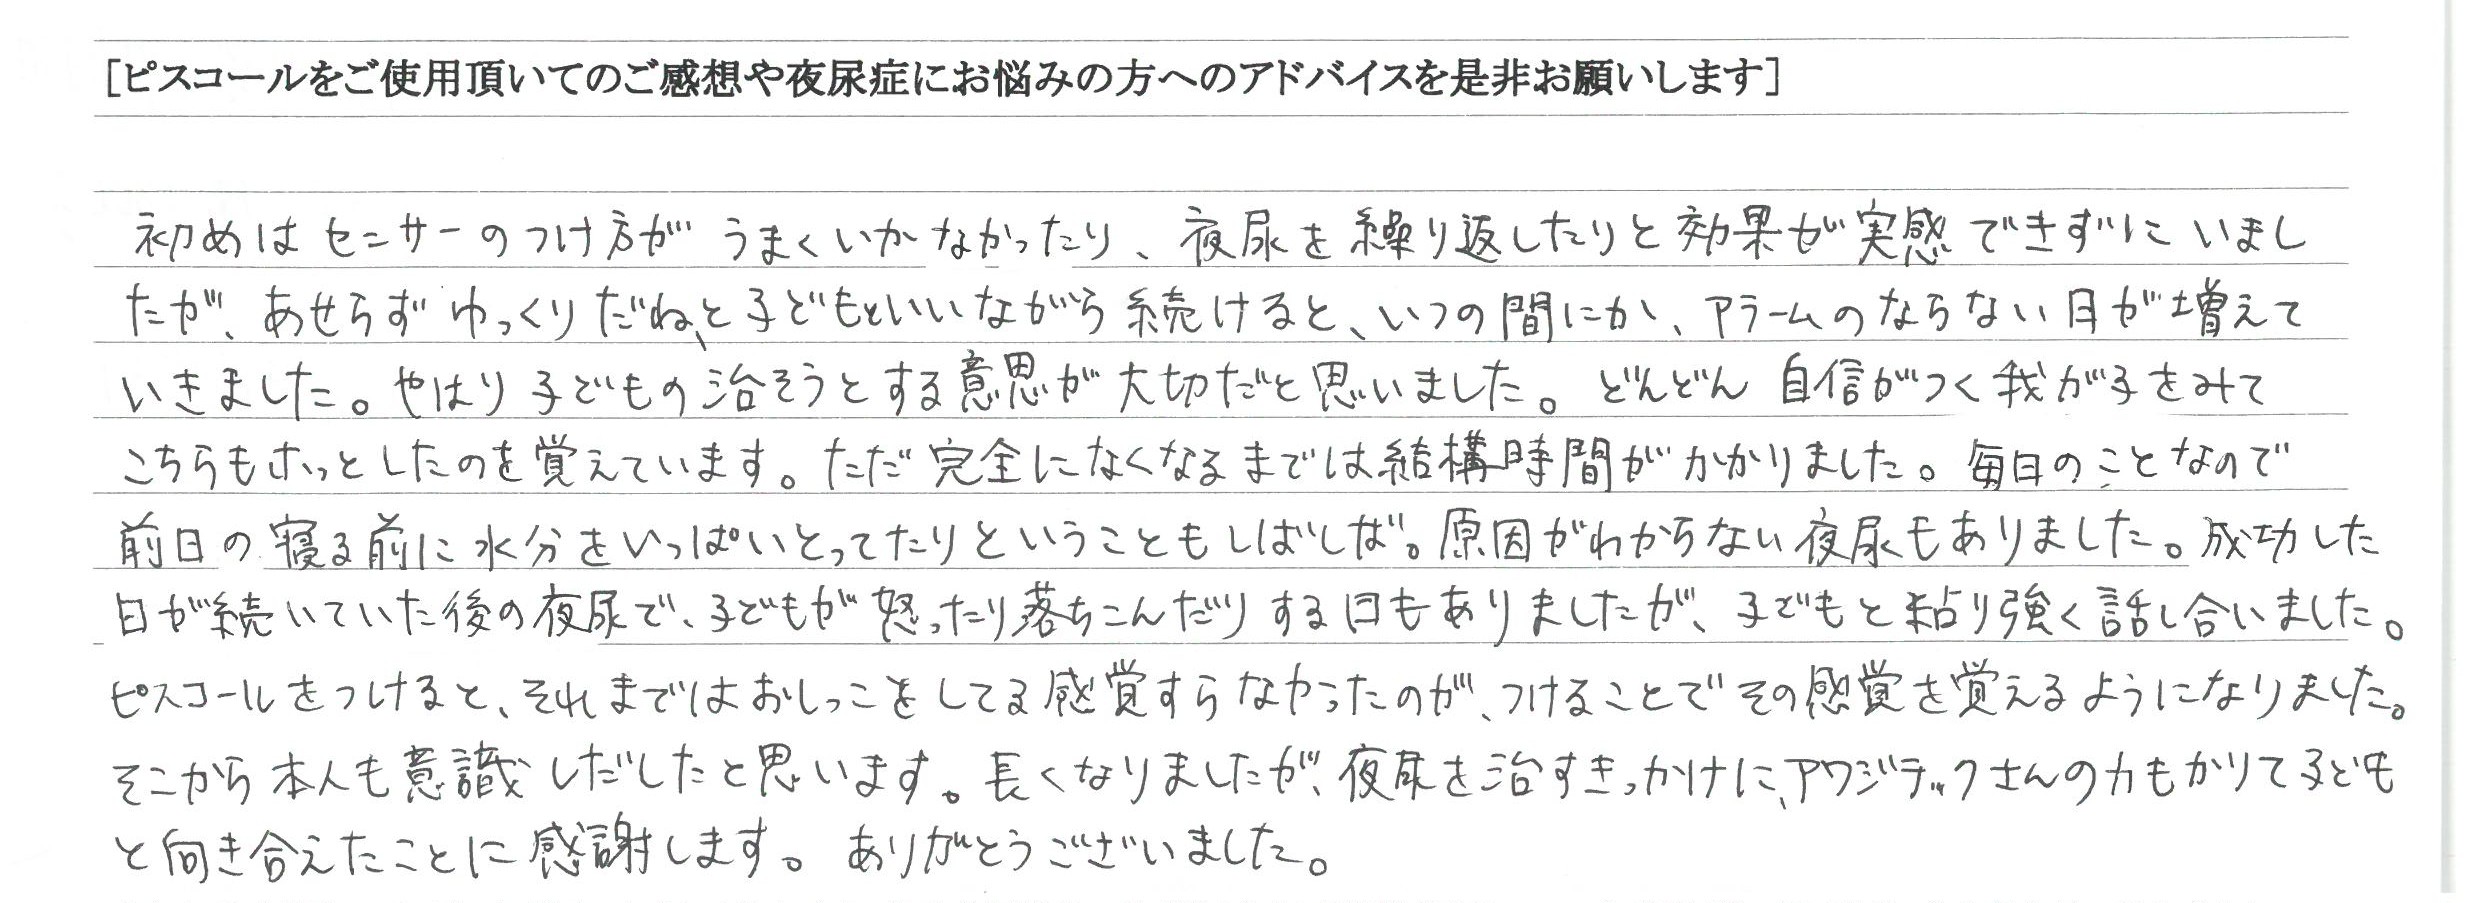 [ピスコールをご使用頂いてのご感想や夜尿症にお悩みの方へのアドバイスを是非お願いします]
初めはセンサーのつけ方がうまくいかなかったり、夜尿を繰り返したりと効果が実感できずにいまし
たが、あせらずゆっくりだね、と子どもといいながら続けると、いつの間にか、アラームのならない日が増えて
いきました。やはり子どもの治そうとする意思が大切だと思いました。どんどん自信がつく我が子をみて
こちらもホッとしたのを覚えています。ただ完全になくなるまでは結構時間がかかりました。毎日のことなので
前日の寝る前に水分をいっぱいとってたりということもしばしば。原因がわからない夜尿もありました。成功した
日が続いていた後の夜尿で、子どもが怒ったり落ちこんだりする日もありましたが、子どもと粘り強く話し合いました。
ピスコールをつけると、それまではおしっこをしてる感覚すらなかったのが、つけることでその感覚を覚えるようになりました。
そこから本人も意識しだしたと思います。長くなりましたが、夜尿を治すきっかけに、アワジテックさんの力もかりて子ども
と向き合えたことに感謝します。ありがとうございました。